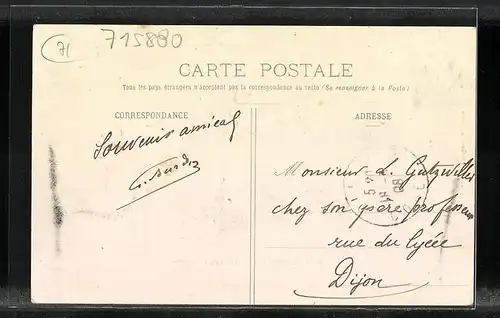 71
715880
CARTE POSTALE
Tous les pays étrangers n'acceptent pas la correspondance au recto (Se renseigner à la Poste)
CORRESPONDANCE
ADRESSE
Souvenir amical
Monsieur L. Gutzwiller
chez son père professeur
rue du lycée
Dijon